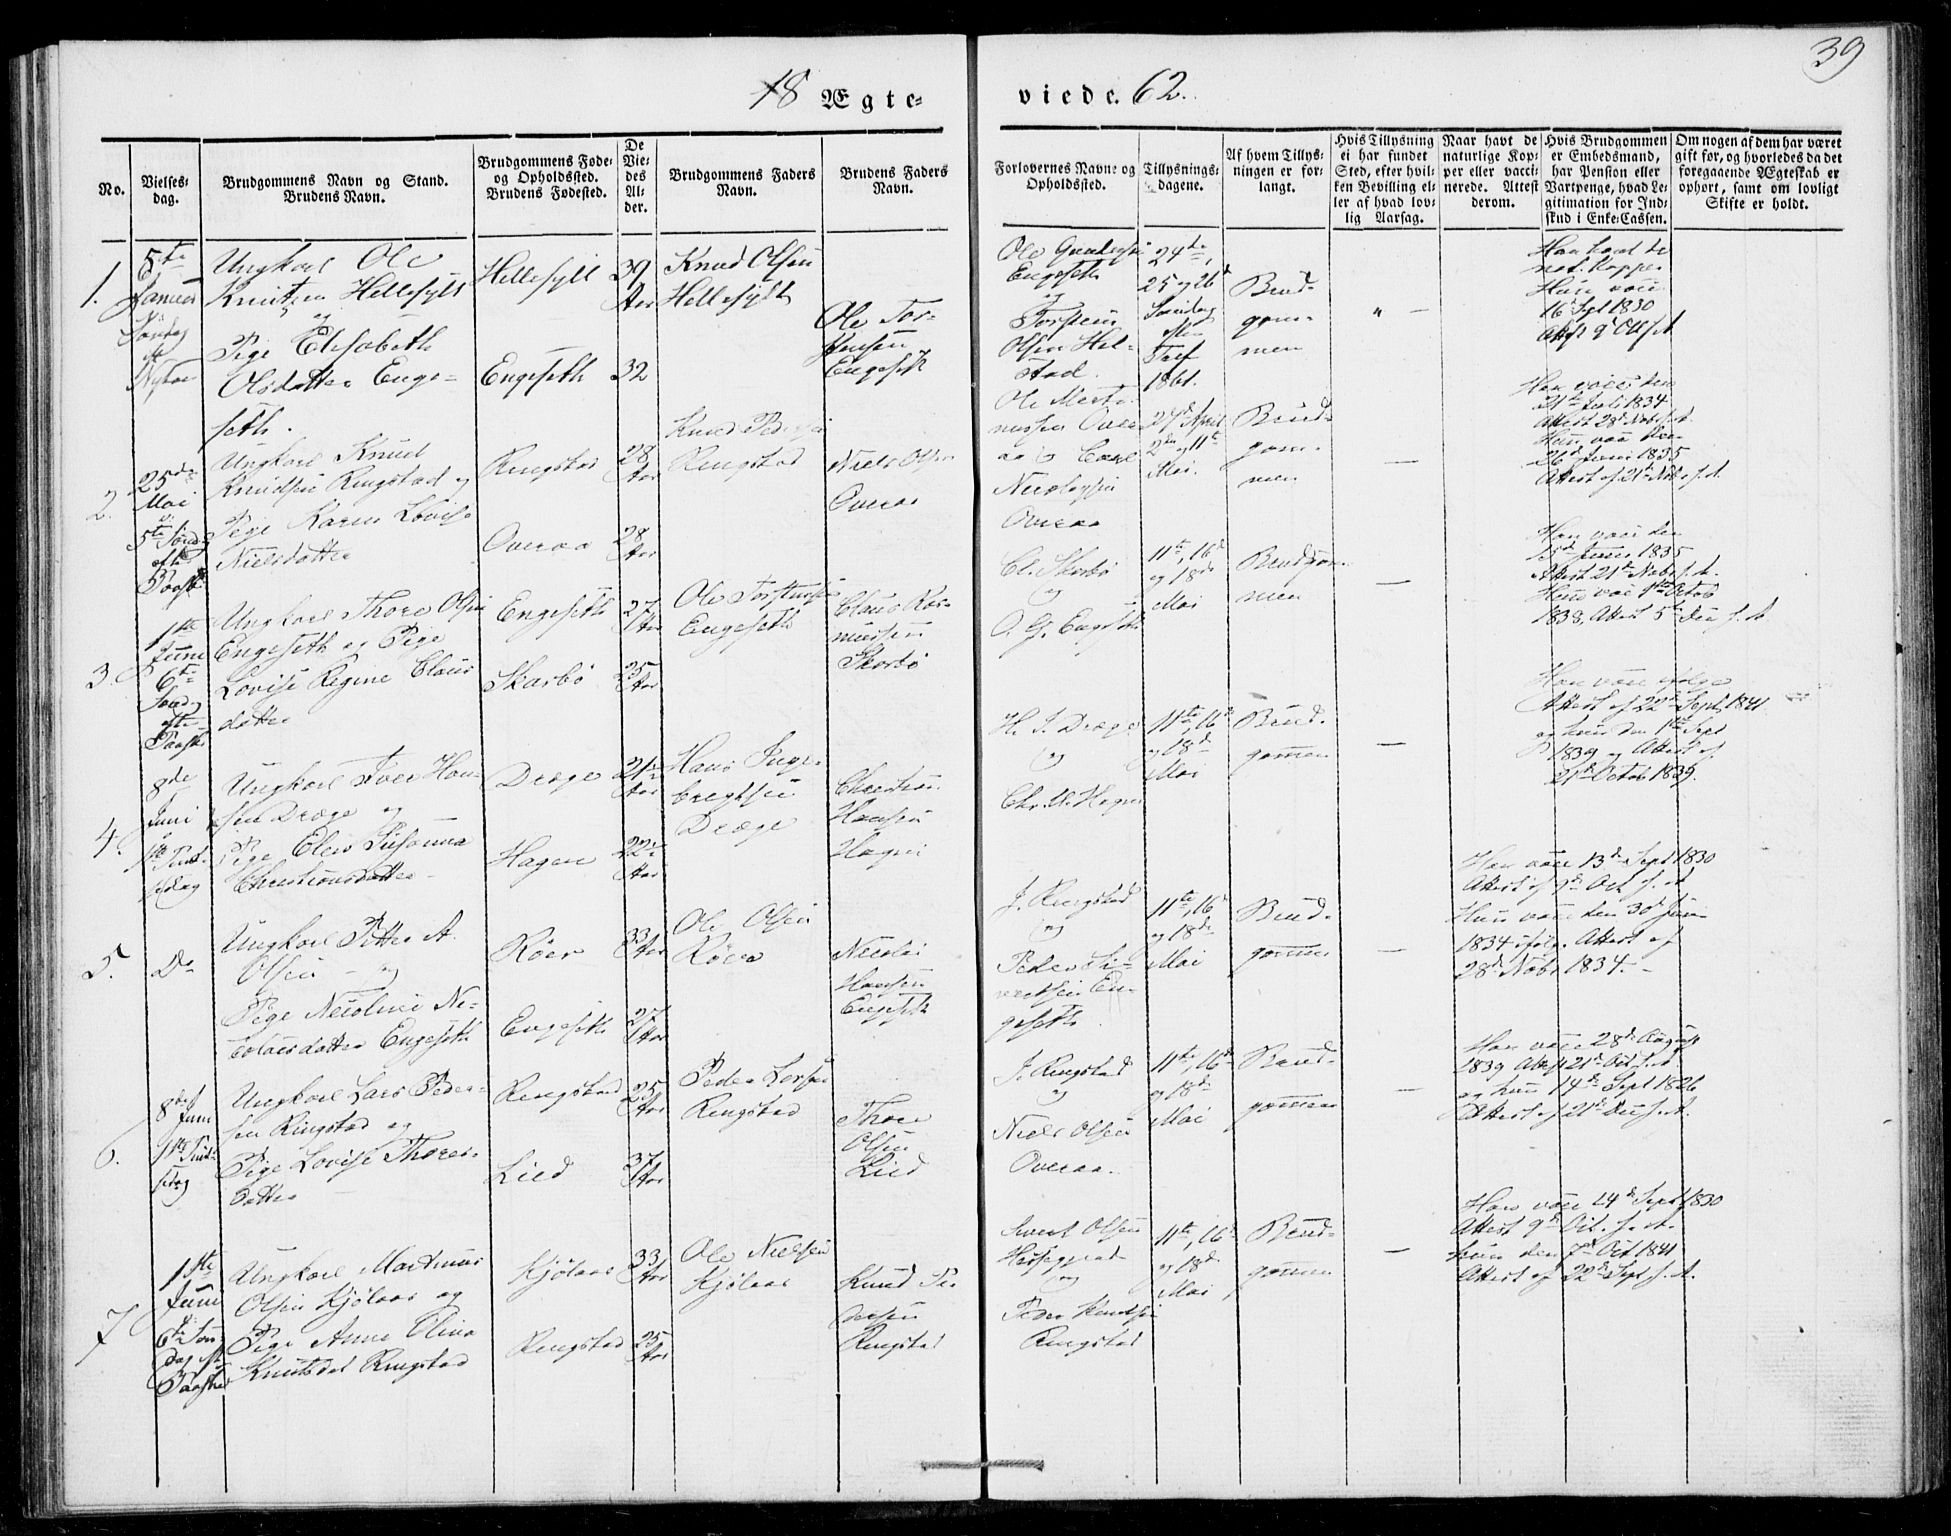 39
18 Ægte-
viede. 62.
No.
Vielses-
dag.
Brudgommens Navn og Stand.
Brudens Navn.
Brudgommens Føde-
og Opholdssted.
Brudens Fødested.
De
Vie-
des
Al-
der.
Brudgommens Faders
Navn.
Brudens Faders
Navn.
Forlovernes Navne og
Opholdssted.
Tillysnings-
dagene.
Af hvem Tillys-
ningen er for-
langt.
Hvis Tillysning
ei har fundet
Sted, efter hvil-
ken Bevilling el-
ler af hvad lov-
lig Aarsag.
Naar havt de
naturlige Kop-
per eller vacci-
nerede. Attest
derom.
Hvis Brudgommen
er Embedsmand,
har Pension eller
Vartpenge, hvad Le-
gitimation for Ind-
skud i Enke-Cassen.
Om nogen af dem har været
gift før, og hvorledes da det
foregaaende Ægteskab er
ophørt, samt om lovligt
Skifte er holdt.
1.
5te
Januar
Søndag
Nytaar
Ungkarl Ole
Knutzen Hellesylt
og
Pige Elisabeth
Olsdatter Enge-
seth.
Hellesylt
Engeseth
39
Aar
32
Knud Olsen
Hellesylt
Ole Tor-
stensen
Engeseth
Ole
Engeseth
og
Torstein
Olsen Hel-
stad.
24de,
25 og 26d
Søndag
efter
Tref
1861.
Brud-
gom-
men
Han havt de
nat. Kopper
Hun vacc
16d Sept 1830
Attest 9d Oct s. A
2.
25de
Mai
5te Sønd
eft
Paaske
Ungkarl Knud
Knudsen Ringstad og
Pige Karen Lovise
Nielsdatter
Ringstad
Overaa
28
Aar
28
Aar
Knud Pedersen
Ringstad
Niels Olsen
Overaa
Ole Marti-
nussen Over
aa og
Nicolaysen
Overaa
27d April
2den og 11te
Mai.
Brud-
gom-
men
Han vacc den
21de Juli 1834
Attest 28d Nobr s. A.
Hun vacc den
26d Juni 1835
Attest af 21de Nobr s. A.
3.
1ste
Juni
6te
Sønd
efter
Paaske
Ungkarl Thore Olsen
Engeseth og Pige
Lovise Regine Claus
datter
Engeseth
Skarbø
27
Aar
25
Aar
Ole Torstensen
Engeseth
Claus Ras-
mussen
Skarbø
Cl. Skarbø
og
O. G. Engeseth
11te, 16d
og 18de
Mai
Brudgom-
men
Han vacc den
15d Juni 1835
Attest 21de Nobr s. A.
Hun vacc 1ste Octob
1838, Attest 5te Dec s. A
4.
8de
Juni
1ste Pint-
sedag
Ungkarl Iver Han-
sen Drage og
Pige Elen Susanna
Christiansdatter
Drage
Hagen
21
Aar
22
Aar
Hans Inge-
bregtsen
Drage
Christian
Hansen
Hagen
H. I. Drage
og
Chr. H. Hagen
11te, 16de
og 18de
Mai
Brud-
gommen
Han vacc ifølge
Attest af 22de Sept 1841
og hun den 1ste Sept
1839 og Attest af
21de Octob 1839.
5.
Do
Ungkarl Petter A.
Olsen og
Pige Nicoline Ni-
colaisdatter Engeseth
Röer
Engeseth
33
Aar
27
Aar
Ole Olsen
Röer
Nicolai
Hansen
Engeseth
J. Ringstad
og
Peder Si-
vertsen En-
geseth
11te, 16
og 18de
Mai
Brud-
gommen
Han vacc 13de Sept 1830
Attest af 9de Oct s. A
Hun vacc den 30d Juni
1834 ifølg. Attest af
28d Nobr 1834.
6.
8de
Juni
1ste Pint-
sedag
Ungkarl Lars Peder-
sen Ringstad og
Pige Lovise Thores-
datter
Ringstad
Lied
25
Aar
37
Aar
Peder Larsen
Ringstad
Thore
Olsen
Lied
J. Ringstad
og
Niels Olsen
Overaa.
11te, 16de
og 18de
Mai
Brud-
gommen
Han vacc 28de August
1839 Attest 21de Oct s. A.
og hun 14de Sept 1826
Attest af 21de Dec s. A.
7
1ste
Juni
6te Søn
dag eft
Paaske
Ungkarl Martinus
Olsen Kjölaas og
Pige Anne Olina
Knutsdat Ringstad
Kjölaas
Ringstad
33
Aar
25
Aar
Ole Nielsen
Kjölaas
Knud Pe-
dersen
Ringstad
Sivert Olsen
og
Peder Knudsen
Ringstad
11te, 16de
og 18de
Mai
Brud-
gommen
Han vacc 14de Sept 1830
Attest 9de Oct. s. A.
hun den 7de Oct 1841
Attest af 22de Sept s. A.